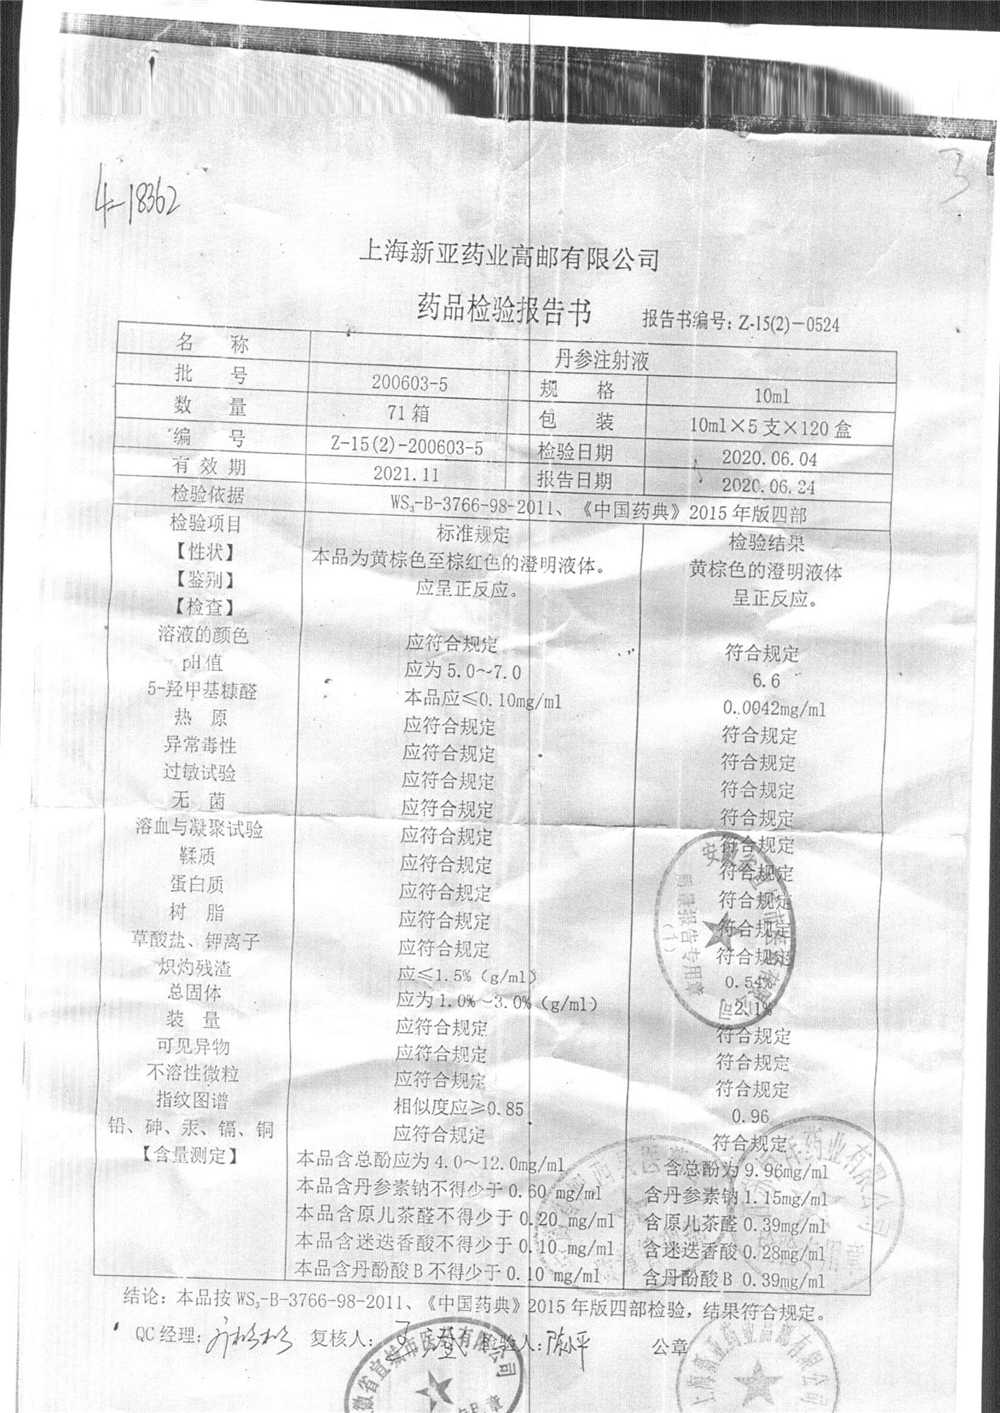 4-18362
3
上海新亚药业高邮有限公司
药品检验报告书 报告书编号：Z-15(2)-0524
名 称 丹参注射液
批 号 200603-5 规 格 10ml
数 量 71箱 包 装 10ml×5支×120盒
编 号 Z-15(2)-200603-5 检验日期 2020.06.04
有 效 期 2021.11 报告日期 2020.06.24
检验依据 WS₃-B-3766-98-2011、《中国药典》2015年版四部
检验项目 标准规定 检验结果
【性状】 本品为黄棕色至棕红色的澄明液体。 黄棕色的澄明液体
【鉴别】 应呈正反应。 呈正反应。
【检查】
溶液的颜色 应符合规定 符合规定
pH值 应为5.0～7.0 6.6
5-羟甲基糠醛 本品应≤0.10mg/ml 0.0042mg/ml
热 原 应符合规定 符合规定
异常毒性 应符合规定 符合规定
过敏试验 应符合规定 符合规定
无 菌 应符合规定 符合规定
溶血与凝聚试验 应符合规定 符合规定
鞣质 应符合规定 符合规定
蛋白质 应符合规定 符合规定
树 脂 应符合规定 符合规定
草酸盐、钾离子 应符合规定 符合规定
炽灼残渣 应≤1.5%（g/ml） 0.54%
总固体 应为1.0%～3.0%（g/ml） 2.1%
装 量 应符合规定 符合规定
可见异物 应符合规定 符合规定
不溶性微粒 应符合规定 符合规定
指纹图谱 相似度应≥0.85 0.96
铅、砷、汞、镉、铜 应符合规定 符合规定
【含量测定】 本品含总酚应为4.0～12.0mg/ml 含总酚为9.96mg/ml
本品含丹参素钠不得少于0.60mg/ml 含丹参素钠1.15mg/ml
本品含原儿茶醛不得少于0.20mg/ml 含原儿茶醛0.39mg/ml
本品含迷迭香酸不得少于0.10mg/ml 含迷迭香酸0.28mg/ml
本品含丹酚酸B不得少于0.10mg/ml 含丹酚酸B 0.39mg/ml
结论：本品按WS₃-B-3766-98-2011、《中国药典》2015年版四部检验，结果符合规定。
QC经理： 复核人： 检验人： 公章
质检报告专用章
(1)
上海新亚药业高邮有限公司